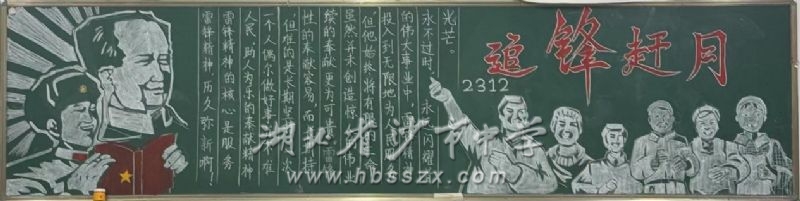 追锋赶月
2312
雷锋精神，历久弥新啊！
雷锋精神的核心是服务
人民、助人为乐的奉献精神
一个人偶尔做好事不难
但难的是长期坚
性的奉献容易，而持
续的奉献更为可贵
虽然并未创造惊伟业
但他始终将有限的生命
投入到无限地为人民服
的伟大事业中，雷锋精
永不过时，永远闪耀
光芒。
湖北省沙市中学
www.hbsszx.com